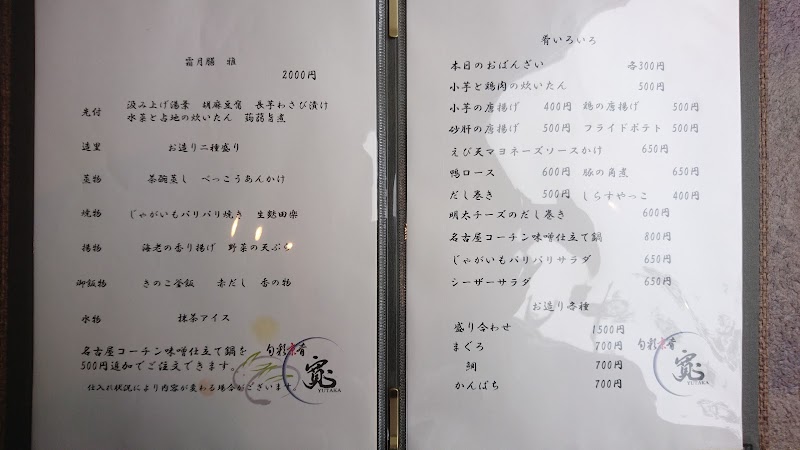 霜月膳 雅
2000円
先付 汲み上げ湯葉 胡麻豆腐 長芋わさび漬け
水菜と占地の炊いたん 蒟蒻旨煮
造里 お造り二種盛り
蒸物 茶碗蒸し べっこうあんかけ
焼物 じゃがいもパリパリ焼き 生麩田楽
揚物 海老の香り揚げ 野菜の天ぷら
御飯物 きのこ釜飯 赤だし 香の物
水物 抹茶アイス
名古屋コーチン味噌仕立て鍋を
500円追加でご注文できます。
仕入れ状況により内容が変わる場合がございます。
旬彩京肴
寛
YUTAKA
肴いろいろ
本日のおばんざい 各300円
小芋と鶏肉の炊いたん 500円
小芋の唐揚げ 400円 鶏の唐揚げ 500円
砂肝の唐揚げ 500円 フライドポテト 500円
えび天マヨネーズソースかけ 650円
鴨ロース 600円 豚の角煮 650円
だし巻き 500円 しらすやっこ 400円
明太チーズのだし巻き 600円
名古屋コーチン味噌仕立て鍋 800円
じゃがいもパリパリサラダ 650円
シーザーサラダ 650円
お造り各種
盛り合わせ 1500円
まぐろ 700円
鯛 700円
かんぱち 700円
旬彩京肴
寛
YUTAKA